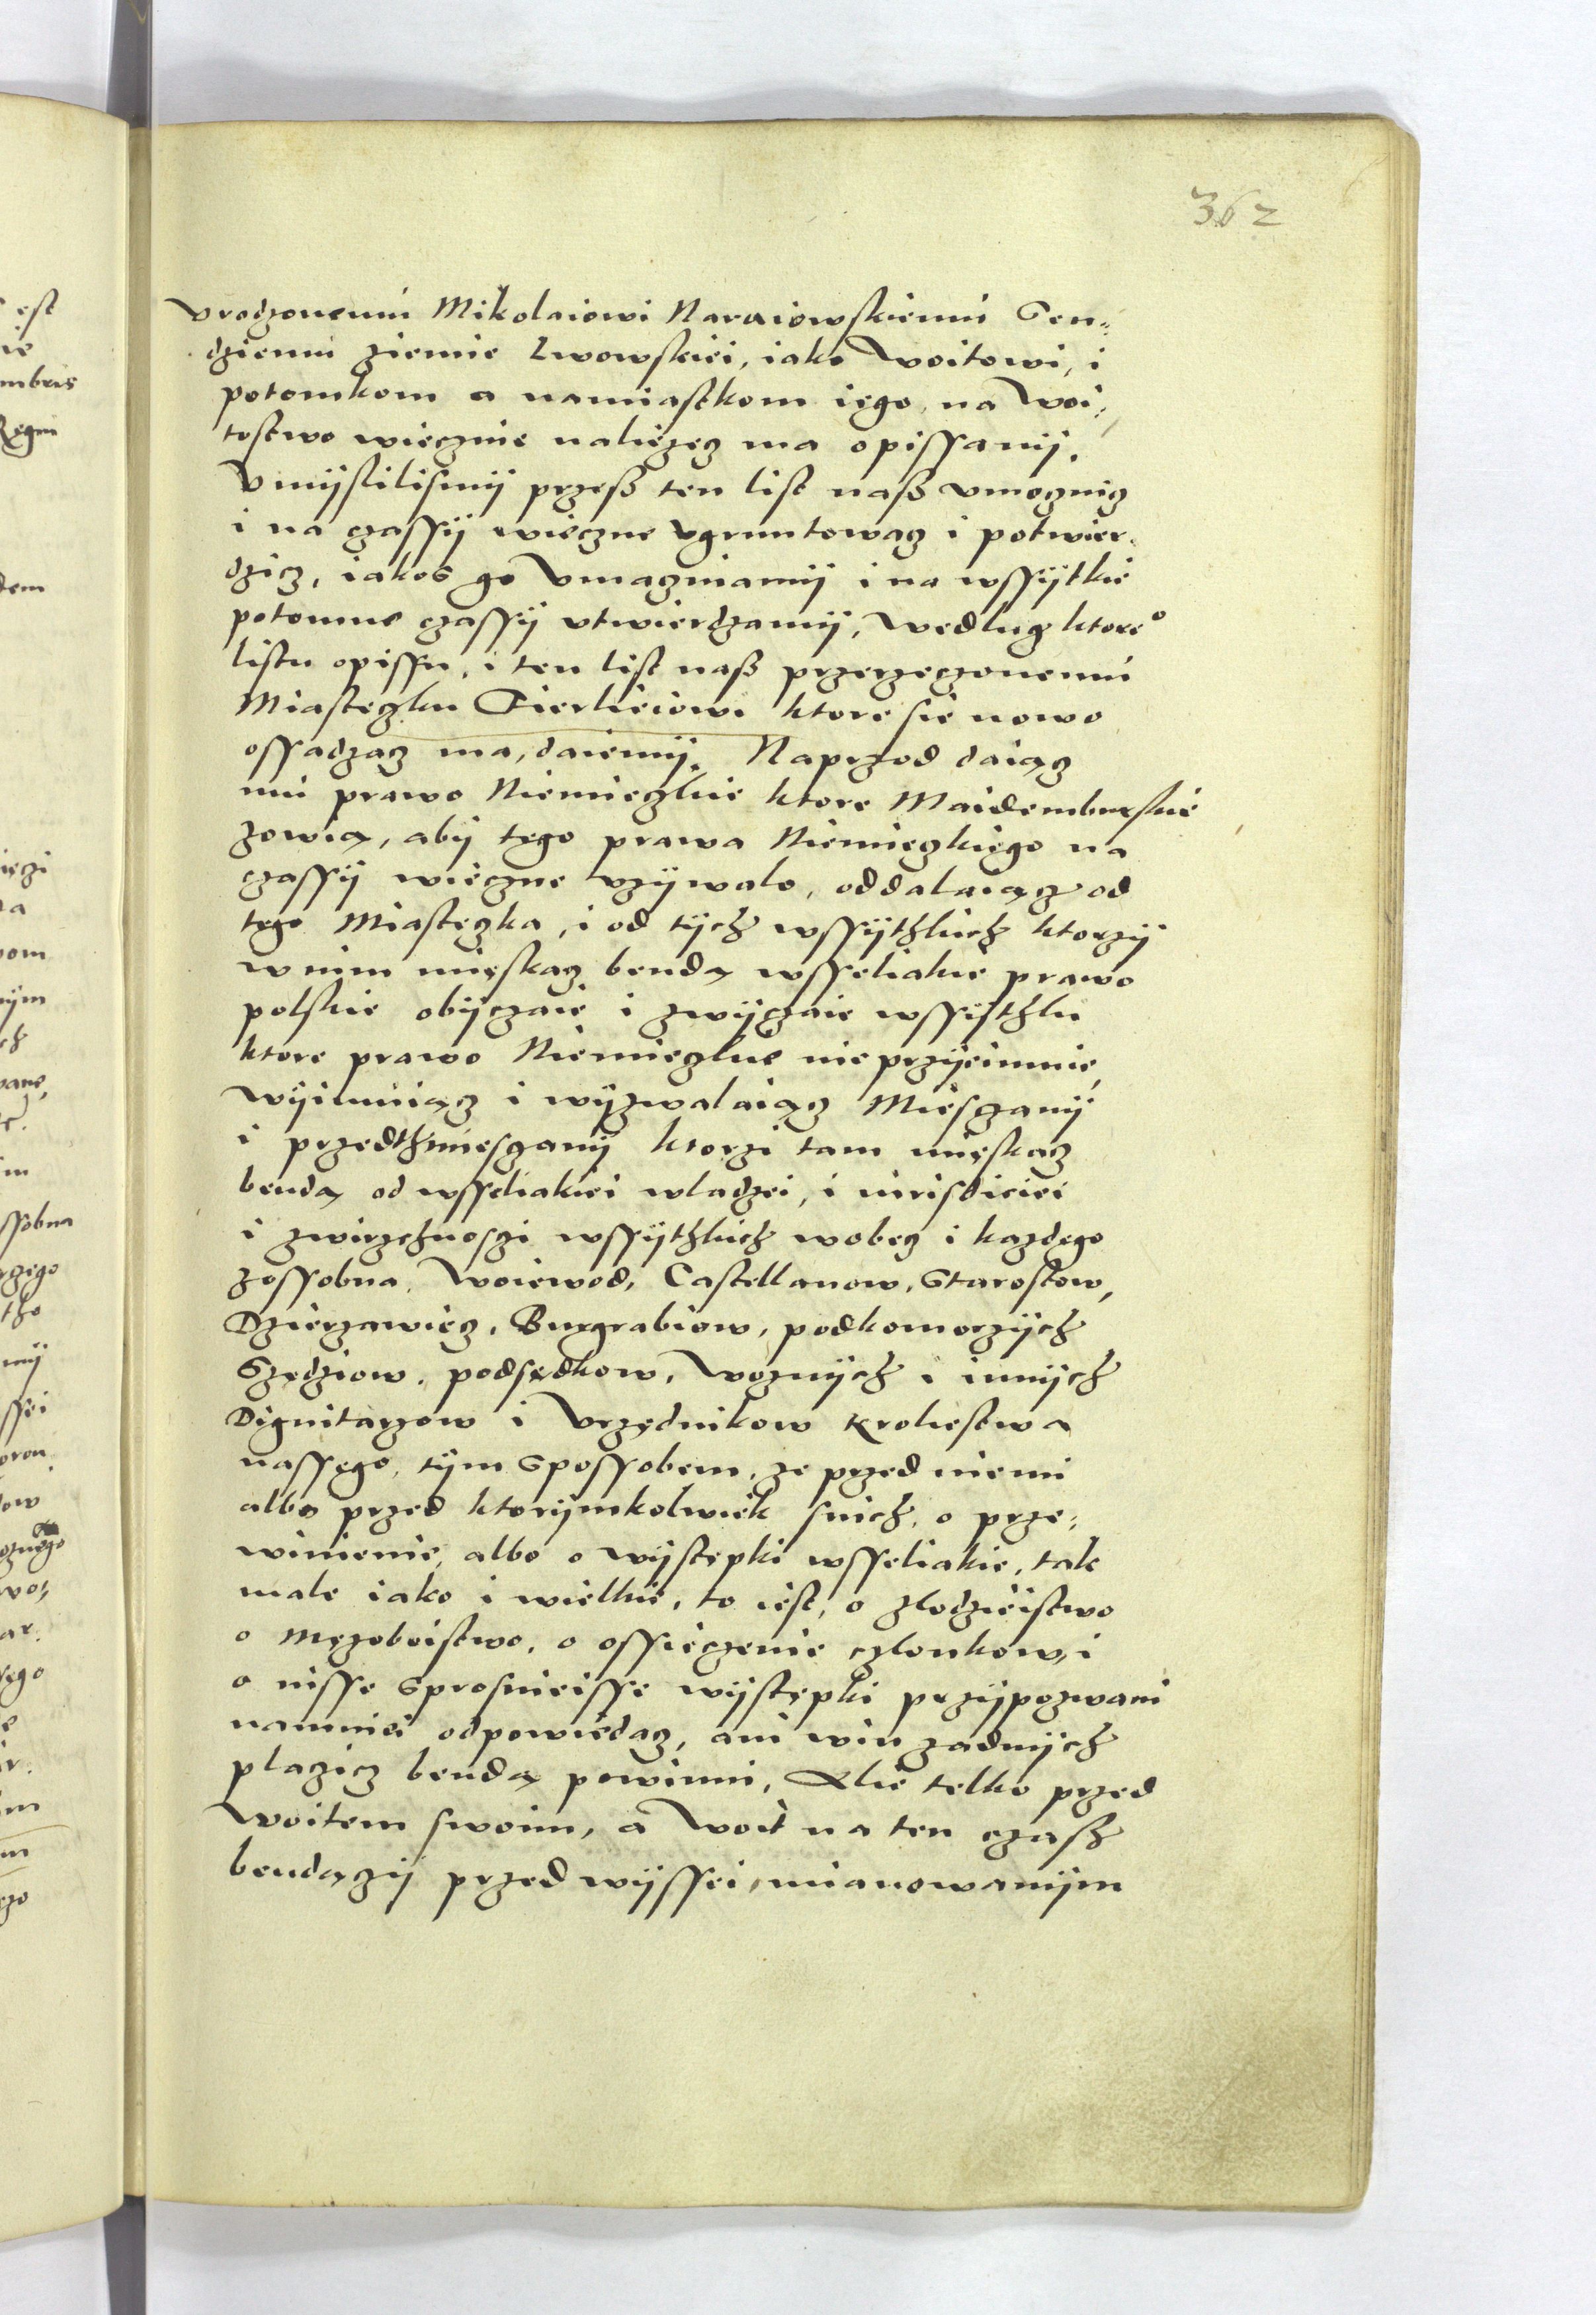 362
vrodzonemu Mikolaiowi Naraiowskiemu Sen=
dziemu ziemie Lwowskiei, iako Woitowi, i
potomkom a namiastkom iego, na Woi,
tostwo wiecznie naliezec ma opissany.
Vmyslilismy przesz ten list nasz vmocznicz
i na czassy wieczne vgruntowacz i potwier,
dzicz, iakos go Vmaczniamy i na wssytkie
potomne czassy vtwierdzamy, Wedlug ktoreo
listu opissu, i ten list nasz przerzeczonemu
Miasteczku Cierliejowi ktore sie nowo
ossadzacz ma, daiemy. Naprzod daiącz
mu prawo Niemieczkie ktore Maidemburskie
zowią, aby tego prawa Niemieczkiego na
czassy wieczne vzywalo, oddalaiącz od
tego Miasteczka, i od tych wssythkich ktorzy
w nim mięskacz bendą wsseliakie prawo
polskie obyczaie i zwyczaie wssysthku
ktore prawo Niemieczkie nie przyeimnie,
wyimuiącz i wyzwalaiącz Miesczany
i przedthmiesczany ktorzi tam mięskacz
bendą od wsseliakiei wladzei, i iurisdiciei
i zwirzchnosczi wssythkich wobecz i kazdego
zossobna, Woiewod, Castellanow, Starostow,
Dzierzawiecz, Burgrabiow, podkomorzych
Szędziow, podsędkow, Woznych i innych
Dignitarzow i Vrzędnikow Kroliestwa
nassęgo, tym Spossobem, ze przed niemi
albo przed ktorymkolwiek snich, o prze=
winienie, albo o wystepki wsseliakie, tak
male iako i wielkie, to iest, o zlodzieistwo
o męzoboistwo, o ossieczenie czlonkow, i
o nisse Sprosnieisse wystepki przypozwani
namniei odpowiedacz, ani win zadnych
placzicz bendą powinni, Alie telko przed
Woitem swoim, a Woit na ten czasz
bendączy przed wyssei mianowanym